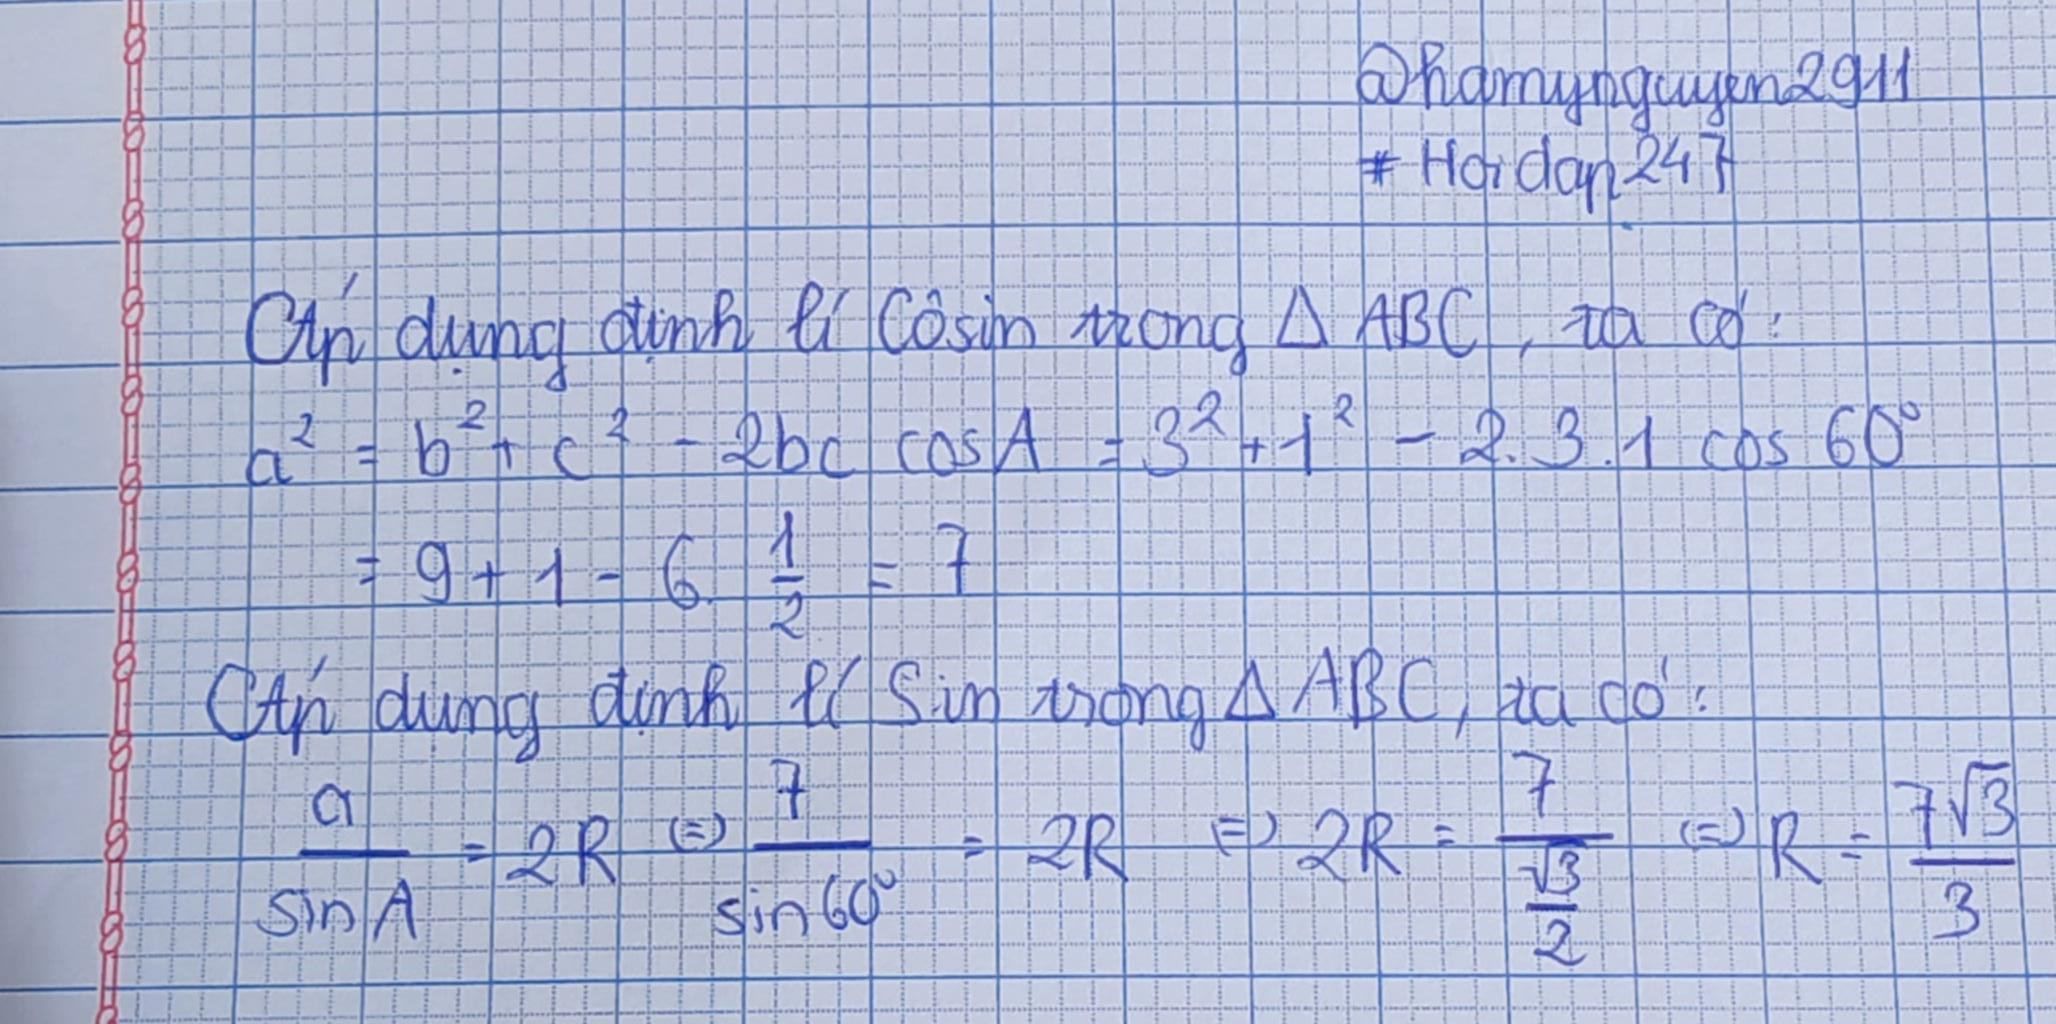 @hamynguyen2911
#Hoidap247
Áp dụng định lí Côsin trong Δ ABC, ta có:
a² = b² + c² - 2bc cosA = 3² + 1² - 2.3.1 cos 60°
= 9 + 1 - 6. 1/2 = 7
Áp dụng định lí Sin trong Δ ABC, ta có:
a/sin A = 2R (=) 7/sin60° = 2R (=) 2R = 7/(√3/2) (=) R = 7√3/3